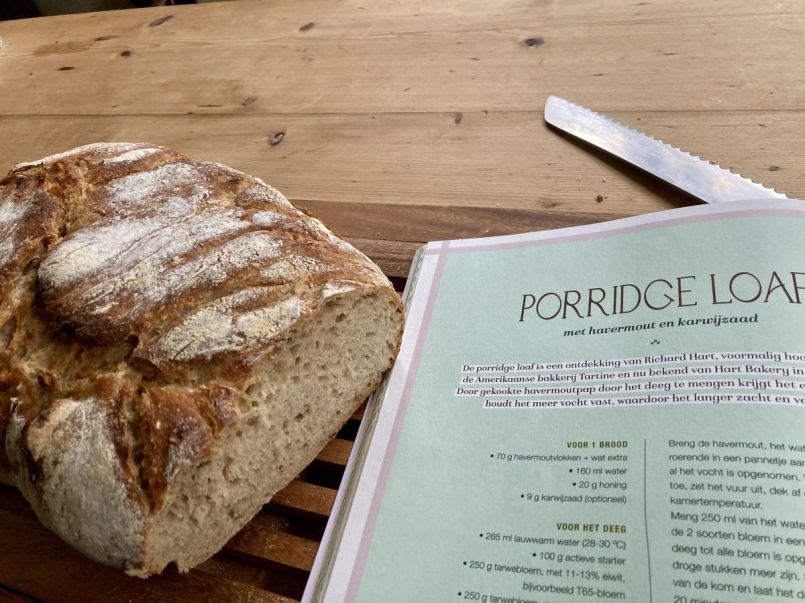 PORRIDGE LOAF
met havermout en karwijzaad
De porridge loaf is een ontdekking van Richard Hart, voormalig
de Amerikaanse bakkerij Tartine en nu bekend van Hart Bakery in
Door gekookte havermoutpap door het deeg te mengen krijgt het
houdt het meer vocht vast, waardoor het langer zacht en
VOOR 1 BROOD
• 70 g havermoutvlokken + wat extra
• 160 ml water
• 20 g honing
• 9 g karwijzaad (optioneel)
VOOR HET DEEG
• 265 ml lauwwarm water (28-30 ºC)
• 100 g actieve starter
• 250 g tarwebloem, met 11-13% eiwit,
bijvoorbeeld T65-bloem
• 250 g tarwebloem,
Breng de havermout, het
roerende in een pannetje
al het vocht is opgenomen.
toe, zet het vuur uit, dek af
kamertemperatuur.
Meng 250 ml van het
de 2 soorten bloem in een
deeg tot alle bloem is
droge stukken meer zijn.
van de kom en laat het
20